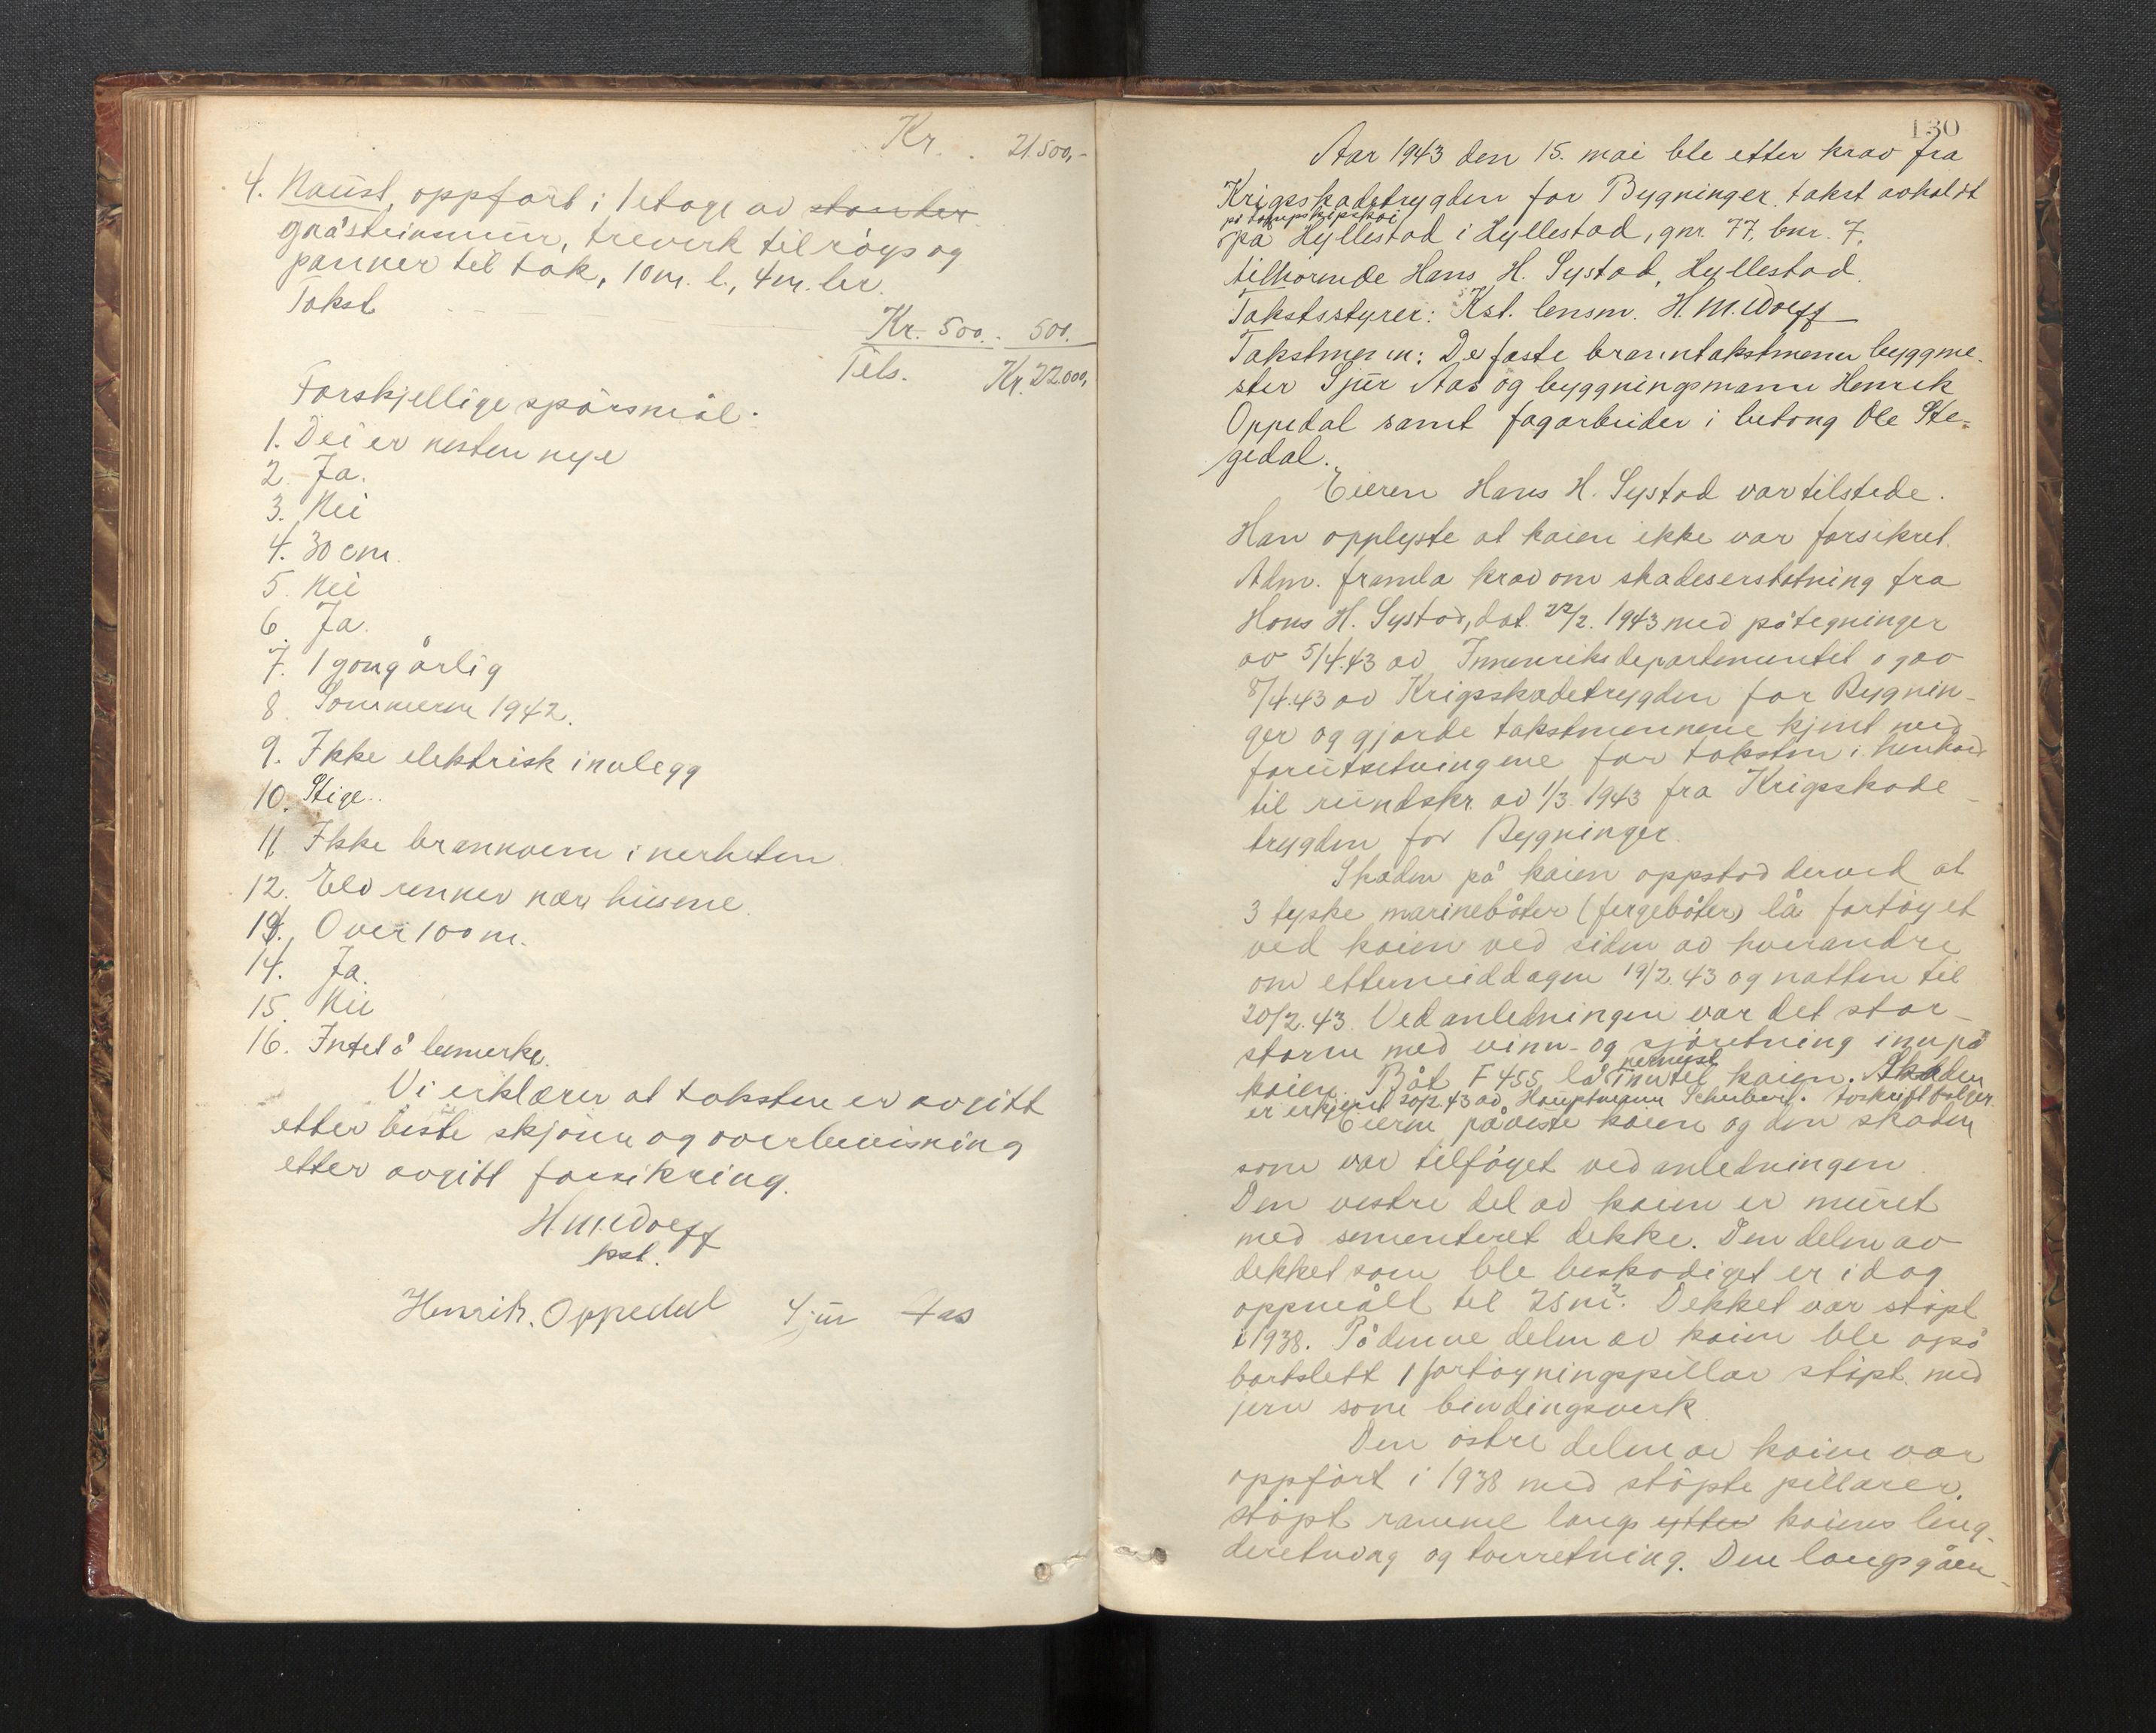 Kr. . 21.500,-
4. Naust, oppført i 1 etage av stander
gråsteinsmur, treverk til røys og
panner til tak, 10 m. l., 4 m. br.
Takst
Kr. 500.- 500.
Tils. Kr. 22.000,
Forskjellige spørsmål.
1. Dei er nesten nye
2. Ja.
3. Nei
4. 30 cm.
5. Nei
6. Ja.
7. 1 gong årlig
8. Sommeren 1942.
9. Ikke elektrisk innlegg
10. Stige..
11. Ikke brannvern i nerheten
12. Elv renner nær husene.
13. Over 100 m.
14. Ja.
15. Nei
16. Intet å bemerke.
Vi erklærer at taksten er avgitt
etter beste skjønn og overbevisning
etter avgitt forsikring.
H.M. Wolff
kst.
Henrik. Oppedal Sjur Aas
130
Aar 1943 den 15. mai ble etter krav fra
Krigsskadetrygden for Bygninger takst avholdt
på dampskipskai
på Hyllestad i Hyllestad, gnr. 77, bnr. 7.
tilhørende Hans H. Systad, Hyllestad.
Takstsstyrer: Kst. lensm. H.M. Wolff
Takstmenn: De faste branntakstmenn byggme-
ster Sjur Aas og byggningsmann Henrik
Oppedal samt fagarbeider i betong Ole Ste-
gedal.
Eieren Hans H. Systad var tilstede.
Han opplyste at kaien ikke var forsikret.
Adm. framla krav om skadeserstatning fra
Hans H. Systad, dat. 22/2. 1943 med påtegninger
av 5/4.43 av Innenriksdepartementet og av
8/4.43 av Krigsskadetrygden for Bygnin-
ger og gjorde takstmennene kjent med
forutsetningene for taksten i henhold
til rundskr. av 1/3. 1943 fra Krigsskade-
trygden for Bygninger.
Skaden på kaien oppstod derved at
3 tyske marinebåter (fergebåter) lå fortøyet
ved kaien ved siden av hverandre
om ettermiddagen 19/2.43 og natten til
20/2.43. Ved anledningen var det stor-
storm med vinn- og sjøretning innpå
nermest
kaien. Båt F 455 lå inntil kaien. Skaden
er erkjent 20/2.43 av Hauptmann Schubert. Avskrift følger.
Eieren påviste kaien og den skaden
som var tilføyet ved anledningen.
Den vestre del av kaien er muret
med sementeret dekke. Den delen av
dekket som ble beskadiget er idag
oppmålt til 25 m². Dekket var støpt
i 1938. På denne delen av kaien ble også
bortslett 1 fortøyningspillar støpt med
jern som bindingsverk.
Den østre delen av kaien var
oppført i 1938 med støpte pillarer,
støpt ramme langs ytter kaiens leng-
deretning og tverretning. Den langsgåen-